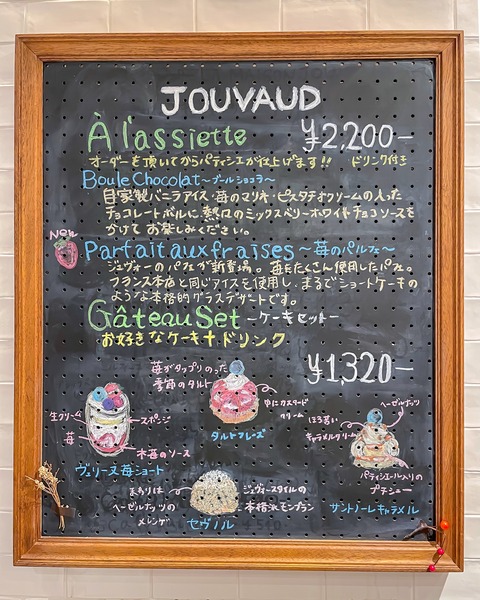 JOUVAUD
À l'assiette ¥2,200-
オーダーを頂いてからパティシエが仕上げます!! ドリンク付き
Boule Chocolat ~ブールショコラ~
自家製バニラアイス・苺のマリネ・ピスタチオクリームの入った
チョコレートボールに熱々のミックスベリーホワイトチョコソースを
かけてお楽しみください。
New
Parfait aux fraises ~苺のパルフェ~
ジュヴォーのパフェが新登場。苺をたくさん使用したパフェ。
フランス本店と同じアイスを使用し、まるでショートケーキの
ような本格的グラスデザートです。
Gâteau Set -ケーキセット-
お好きなケーキ+ドリンク
¥1,320-
苺がタップリのった
季節のタルト
中にカスタード
クリーム
タルトフレーズ
生クリーム
苺
スポンジ
木苺のソース
ヴェリーヌ苺ショート
ヘーゼルナッツ
ほろ苦い
キャラメルクリーム
パティシエール入りの
プチシュー
サントノーレキャラメル
まわりは
ヘーゼルナッツの
メレンゲ
ジュヴォースタイルの
本格派モンブラン
セヴェノル